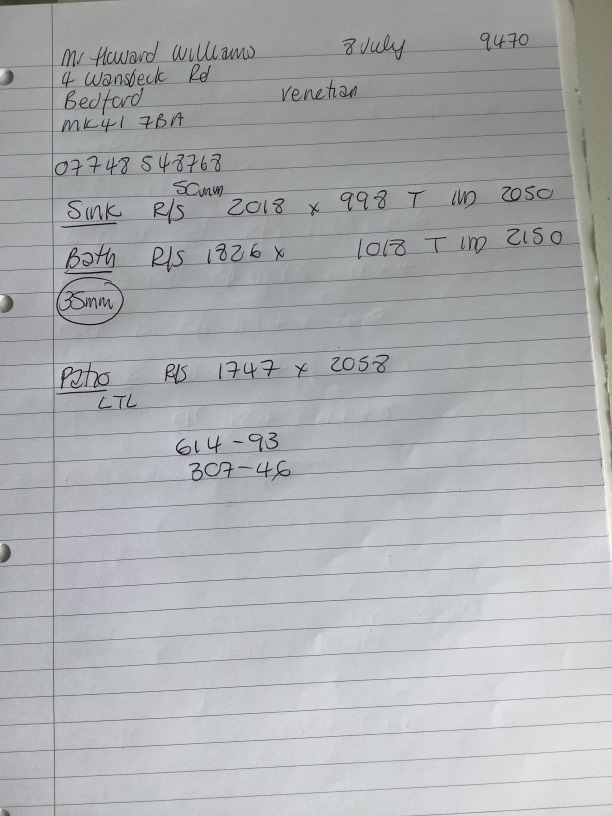 Mr Howard Williams 8 July 9470
4 Wansbeck Rd
Bedford Venetian
MK41 7BA
07748 548768
50mm
Sink R/S 2018 x 998 T IID 2050
Bath R/S 1826 x 1018 T IID 2150
35mm
Patio R/S 1747 x 2058
LTL
614-93
307-46